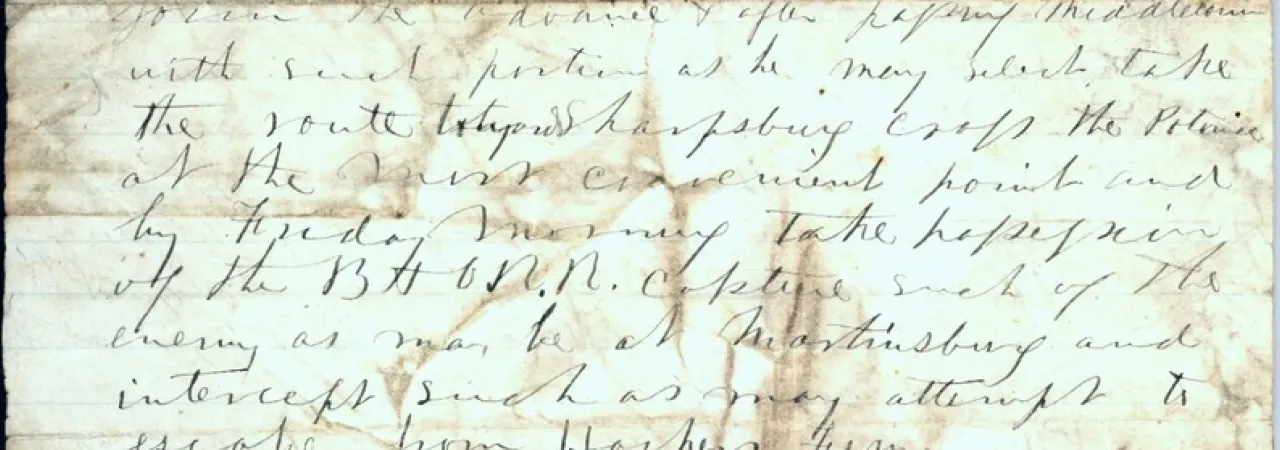 form the advance & after passing Middletown
with such portion as he may select take
the route toward Sharpsburg cross the Potomac
at the most convenient point and
by Friday morning take possession
of the B & O R.R. capture such of the
enemy as may be at Martinsburg and
intercept such as may attempt to
escape from Harpers Ferry